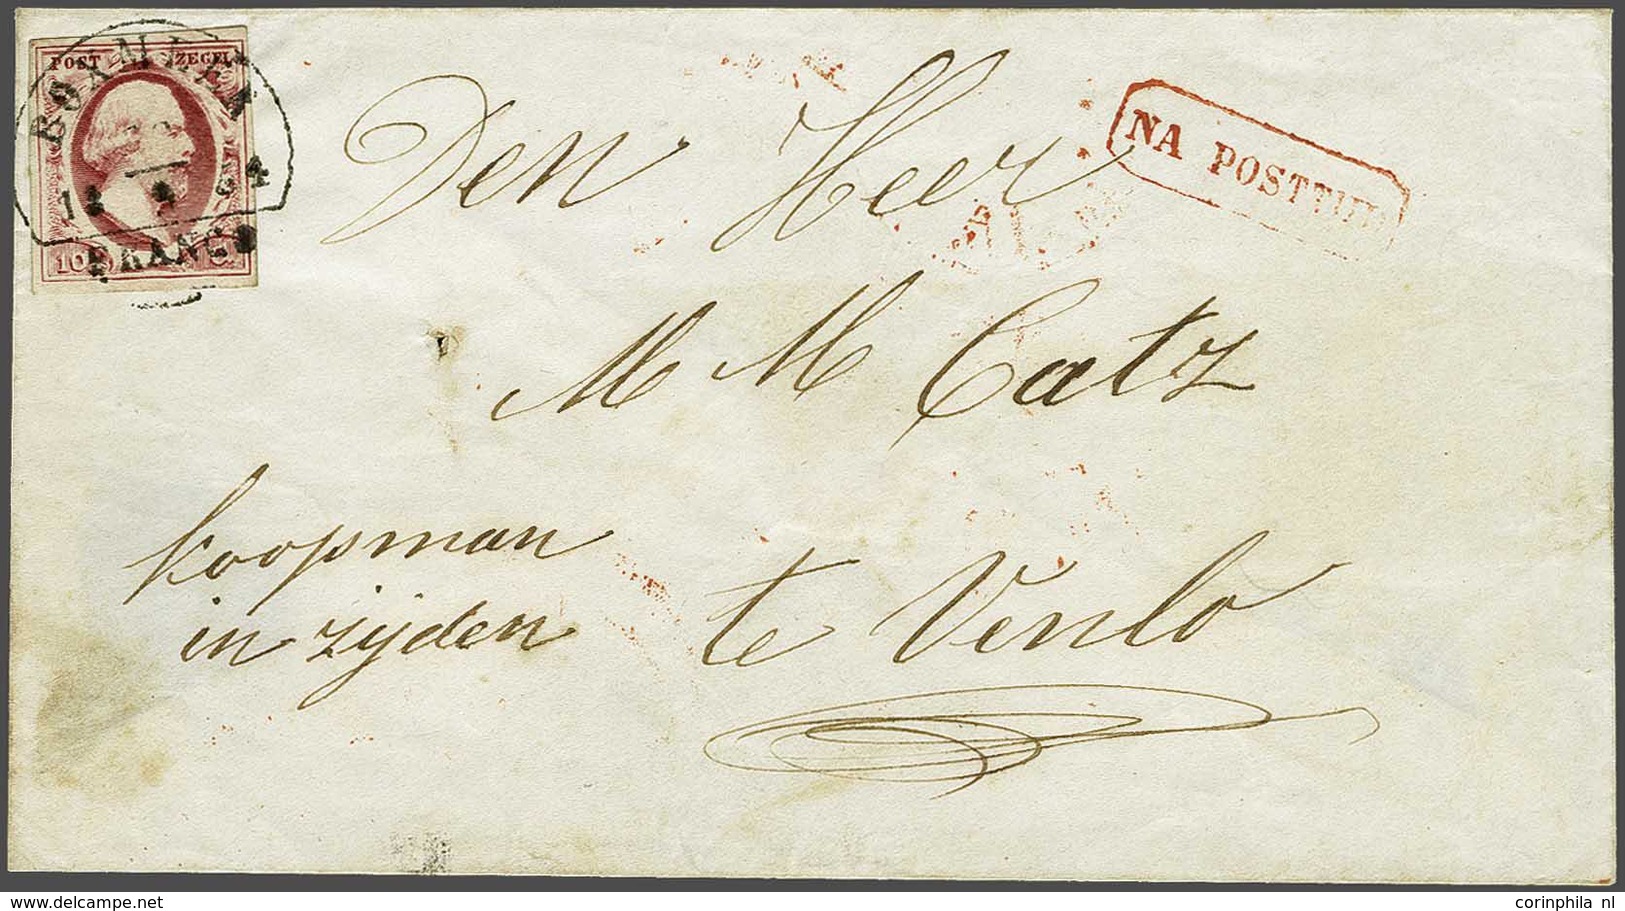 POST ZEGEL
BOXMEER
FRANCO
NA POSTTIJD
Den Heer
M M Catz
koopman
in zijden
te Venlo
delcampe.net
corinphila nl